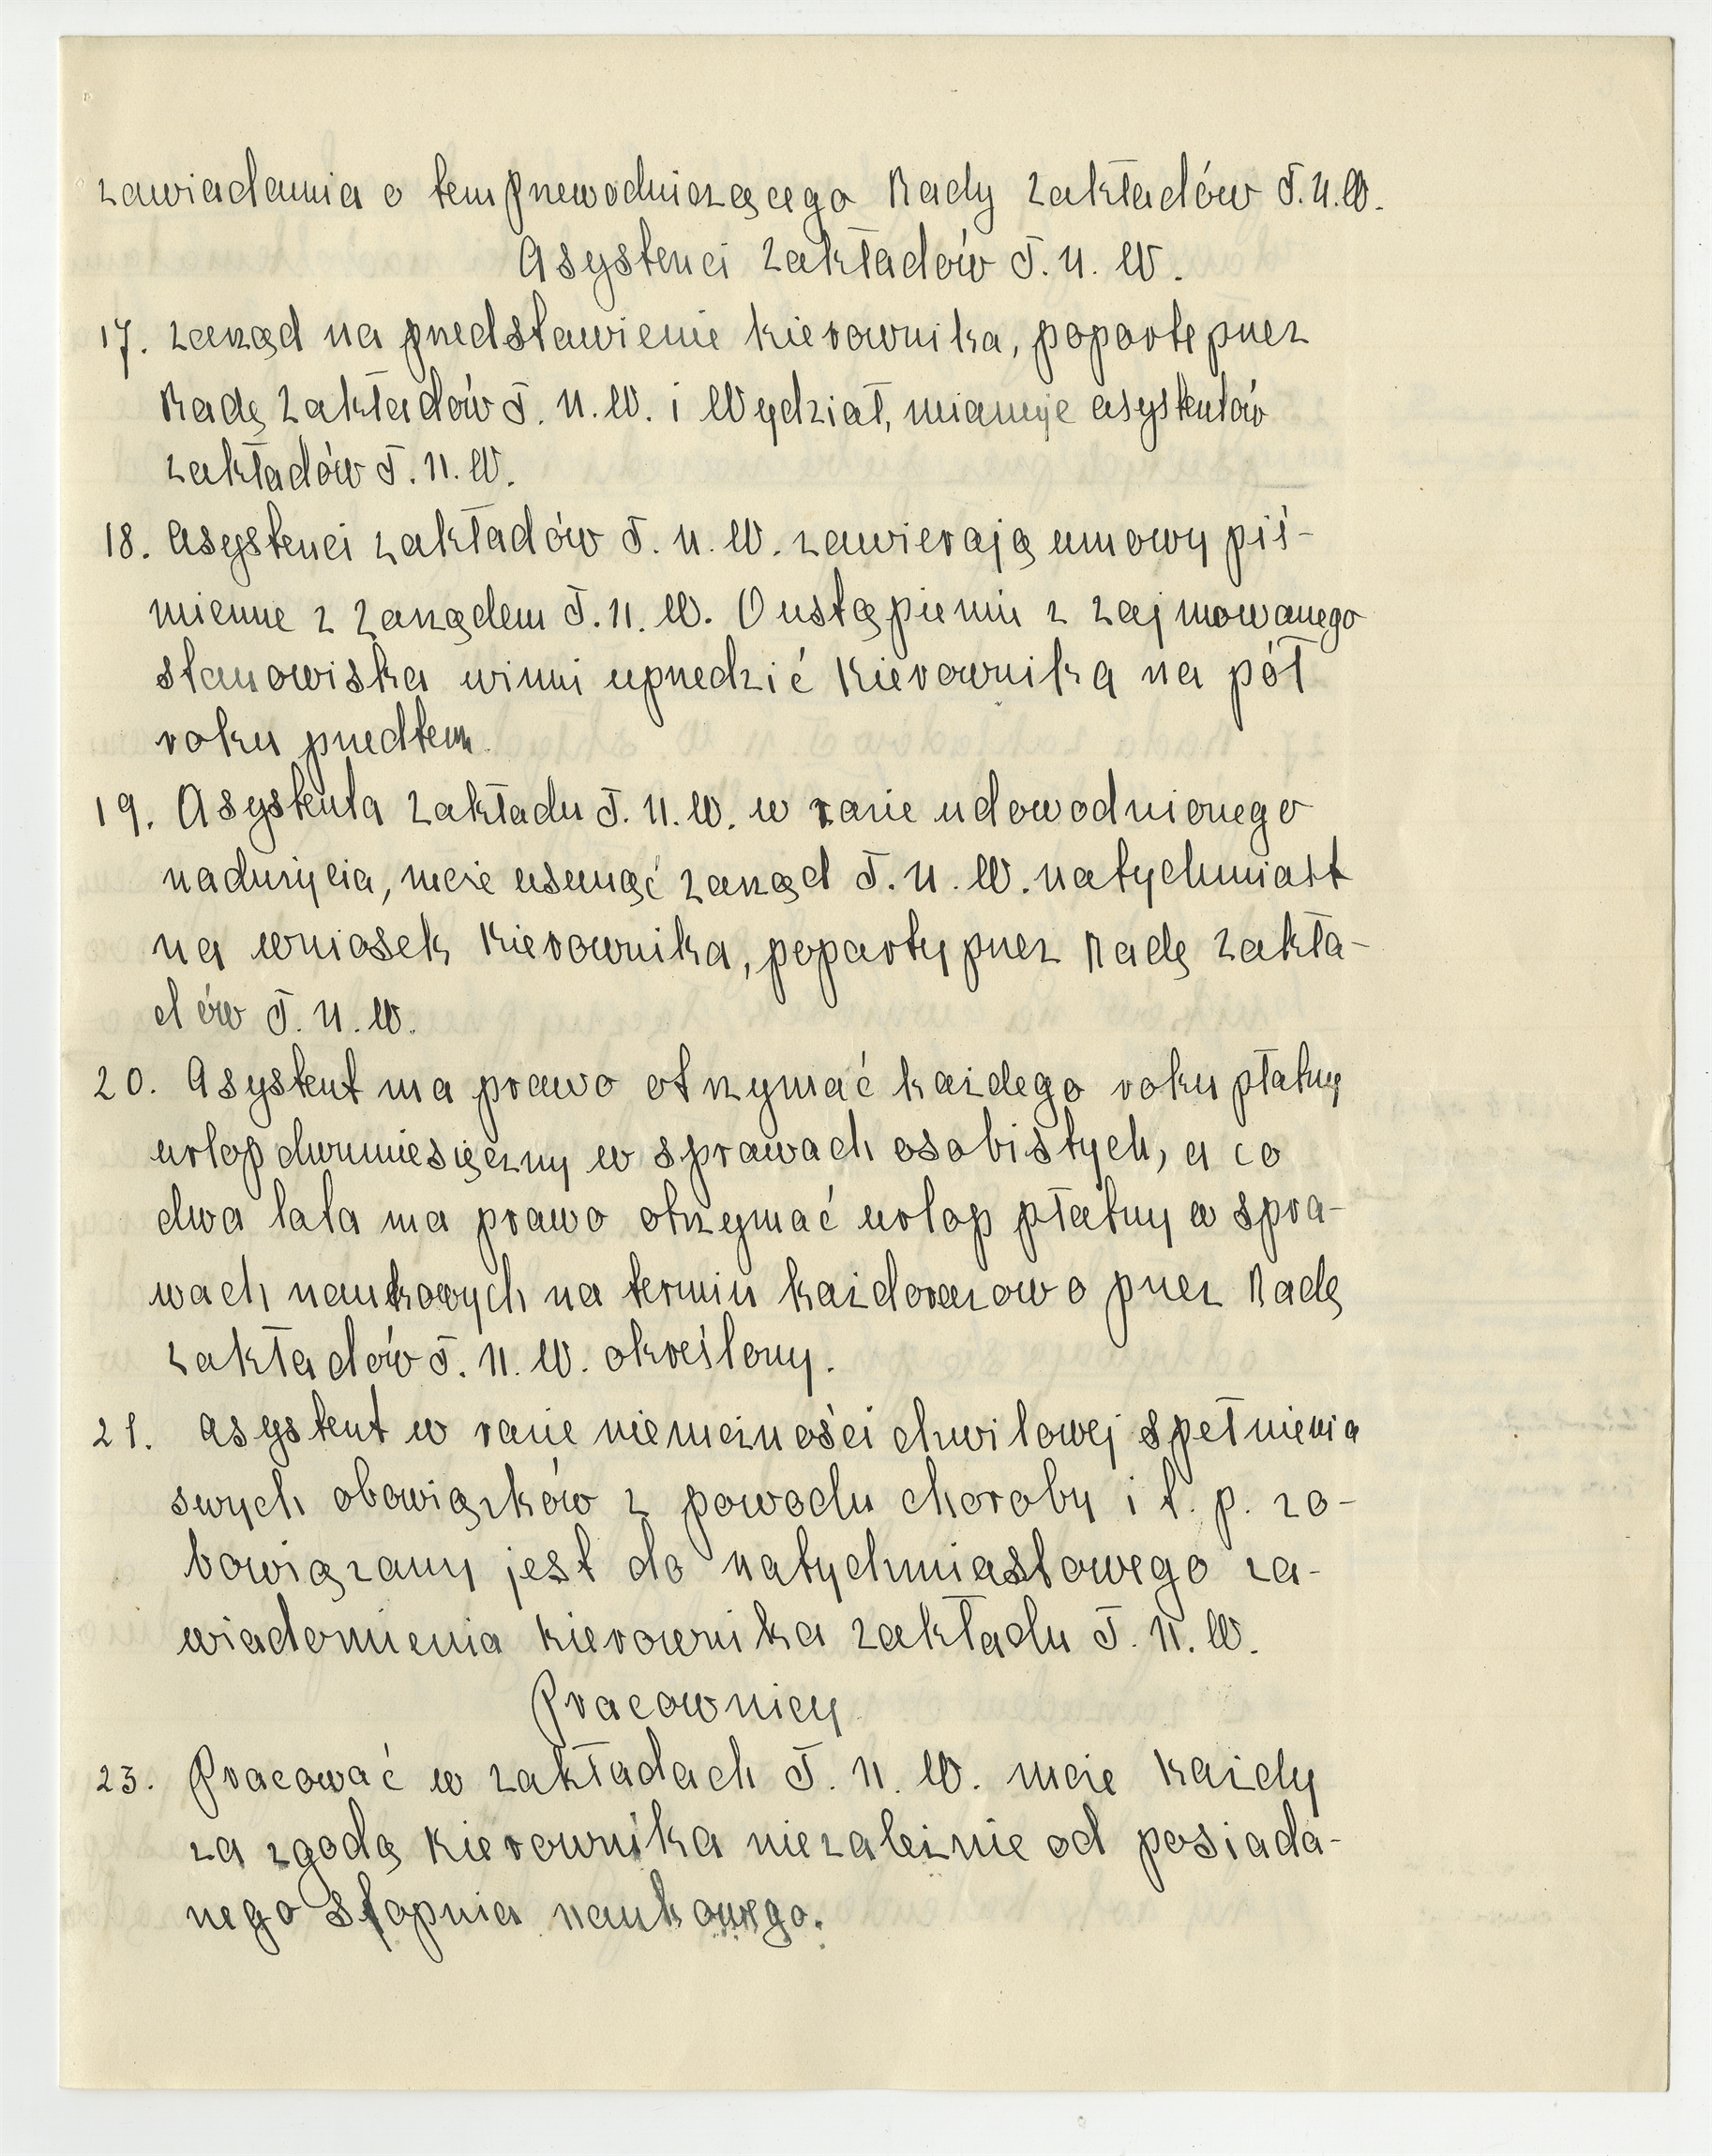 zawiadamia o tem przewodniczącego Rady Zakładów T.N.W.
Asystenci Zakładów T. N. W.
17. Zarząd na przedstawienie kierownika, poparte przez
Radę Zakładów T. N. W. i Wydział, mianuje asystentów
zakładów T. N. W.
18. Asystenci zakładów T. N. W. zawierają umowy piś-
mienne z Zarządem T. N. W. O ustąpieniu z zajmowanego
stanowiska winni uprzedzić Kierownika na pół
roku przedtem.
19. Asystenta Zakładu T. N. W. w razie udowodnionego
nadużycia, może usunąć Zarząd T. N. W. natychmiast
na wniosek Kierownika, poparty przez Radę Zakła-
dów T. N. W.
20. Asystent ma prawo otrzymać każdego roku płatny
urlop dwumiesięczny w sprawach osobistych, a co
dwa lata ma prawo otrzymać urlop płatny w spra-
wach naukowych na termin każdorazowo przez Radę
Zakładów T. N. W. określony.
21. Asystent w razie niemożności chwilowej spełnienia
swych obowiązków z powodu choroby i t. p. zo-
bowiązany jest do natychmiastowego za-
wiadomienia kierownika zakładu T. N. W.
Pracownicy
23. Pracować w zakładach T. N. W. może każdy
za zgodą Kierownika niezależnie od posiada-
nego stopnia naukowego.